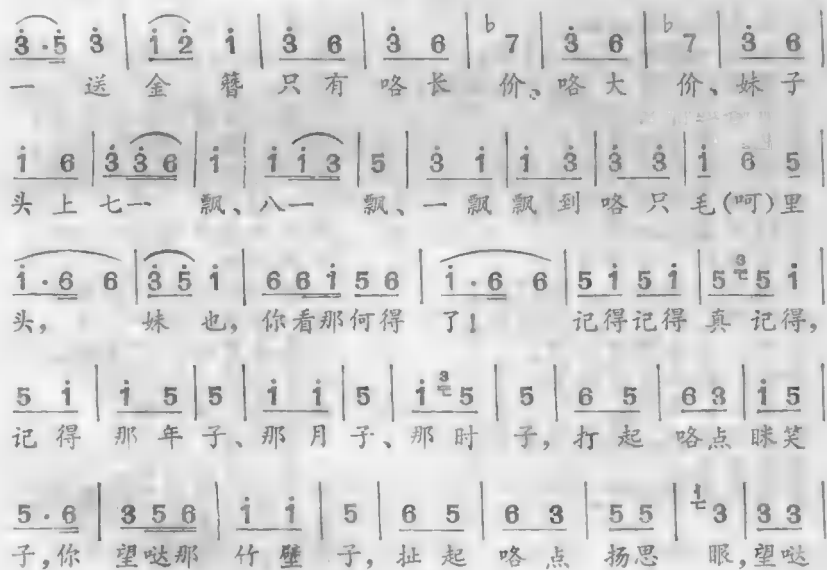 3̇·5̇ 3̇ | 1̇ 2̇ 1̇ | 3̇ 6 | 3̇ 6 | ♭7 | 3̇ 6 | ♭7 | 3̇ 6 |
一 送 金 簪 只 有 咯 长 价、咯 大 价、妹 子
1̇ 6 | 3̇ 3̇ 6 | 1̇ | 1̇ 1̇ 3 | 5 | 3̇ 1̇ | 1̇ 3̇ | 3̇ 3̇ | 1̇ 6 5
头 上 七一 飘、八一 飘、一 飘 飘 到 咯 只 毛(呵)里
1̇·6 6 | 3̇ 5̇ 1̇ | 6 6 1̇ 5 6 | 1̇·6 6 | 5 1̇ 5 1̇ | 5 3 5 1̇ |
头, 妹 也, 你看那何得 了! 记得记得 真 记得,
5 1̇ | 1̇ 5 | 5 | 1̇ 1̇ | 5 | 1̇ 3 5 | 5 | 6 5 | 6 3 | 1̇ 5
记 得 那 年 子、那 月 子、那 时 子, 打 起 咯点 眯笑
5·6 | 3 5 6 | 1̇ 1̇ | 5 | 6 5 | 6 3 | 5 5 | 1 3 | 3 3
子, 你 望哒那 竹 壁 子, 扯 起 咯 点 扬思 眼, 望哒